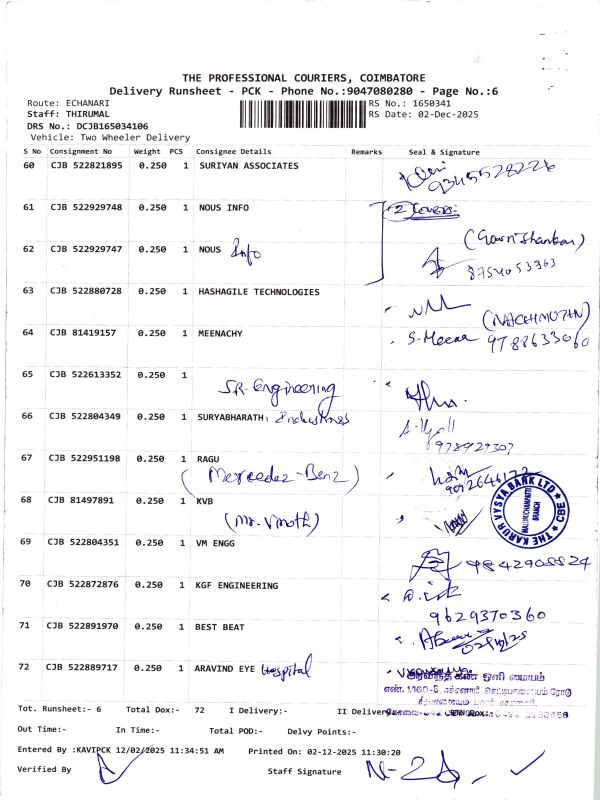 THE PROFESSIONAL COURIERS, COIMBATORE
Delivery Runsheet - PCK - Phone No.:9047080280 - Page No.:6
Route: ECHANARI RS No.: 1650341
Staff: THIRUMAL RS Date: 02-Dec-2025
DRS No.: DCJB165034106
Vehicle: Two Wheeler Delivery
S No Consignment No Weight PCS Consignee Details Remarks Seal & Signature
60 CJB 522821895 0.250 1 SURIYAN ASSOCIATES
9345528226
61 CJB 522929748 0.250 1 NOUS INFO 2 Covers:
62 CJB 522929747 0.250 1 NOUS Info (Gowri Shankar)
8754053363
63 CJB 522880728 0.250 1 HASHAGILE TECHNOLOGIES
64 CJB 81419157 0.250 1 MEENACHY S. Meena 9788633060
65 CJB 522613352 0.250 1
S.R. Engineering
66 CJB 522804349 0.250 1 SURYABHARATH: Industries
978929307
67 CJB 522951198 0.250 1 RAGU
(Mercedez-Benz)
68 CJB 81497891 1 KVB
THE KARUR VYSYA BANK LTD
CBE
BRANCH
69 CJB 522804351 0.250 1 VM ENGG 9842908824
70 CJB 522872876 0.250 1 KGF ENGINEERING
9629370360
71 CJB 522891970 0.250 1 BEST BEAT
72 CJB 522889717 0.250 1 ARAVIND EYE Hospital
அரவிந்த் கண் ஒளி மையம்
Tot. Runsheet:- 6 Total Dox:- 72 I Delivery:- II Delivery
Out Time:- In Time:- Total POD:- Delvy Points:-
Entered By :KAVIPCK 12/02/2025 11:34:51 AM Printed On: 02-12-2025 11:30:20
Verified By Staff Signature